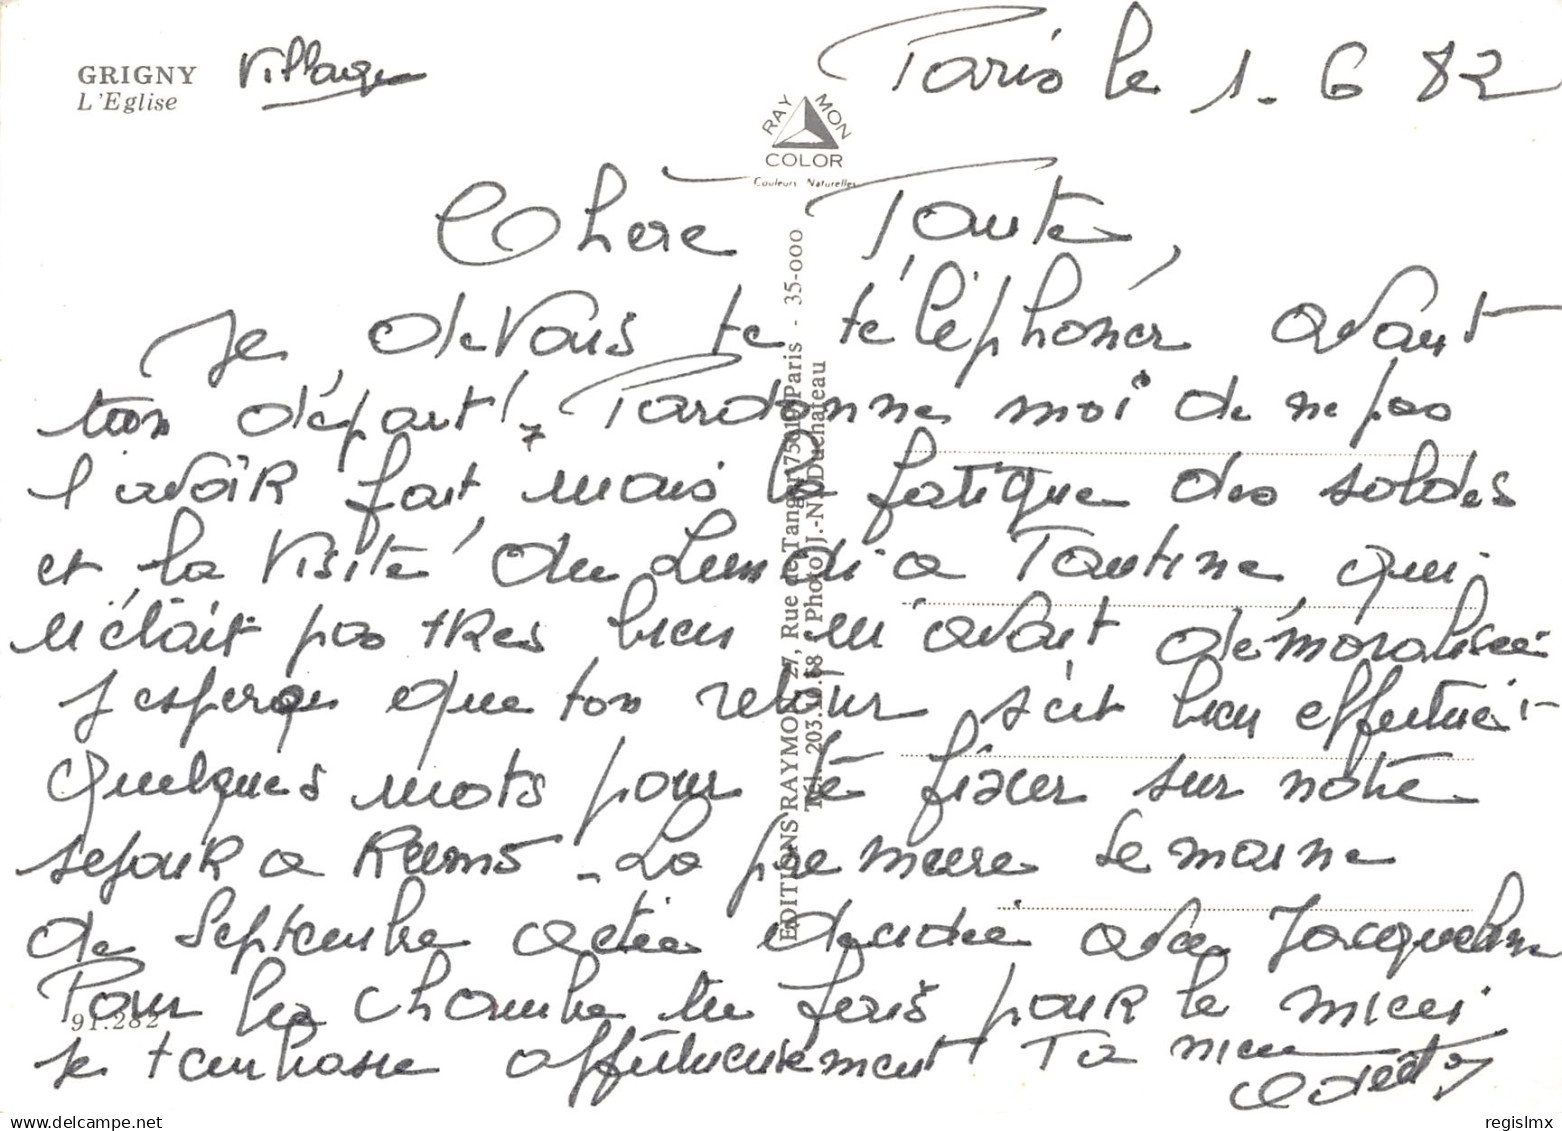 GRIGNY Village
L'Eglise
Paris le 1.6 82
RAYMON COLOR
Couleurs Naturelles
Chère Tante,
Je devais te téléphoner avant
ton départ! Pardonne moi de ne pas
l'avoir fait, mais la fatigue des soldes
et la visite du Lundi a Tantine qui
n'était pas tres bien m'avait démoralisée
J'espere que ton retour soit bien effectué -
Quelques mots pour te fixer sur notre
sejour a Reims - La premiere semaine
de Septembre a été decidée avec Jacqueline
Pour la chambre tu feras pour le mieux
je t'embrasse affectueusement Ta niece
Odette
EDITIONS RAYMON - 27, Rue de Tanger 75019 Paris - 35-000
Photo J.-N. Duchateau
91.282
regislmx